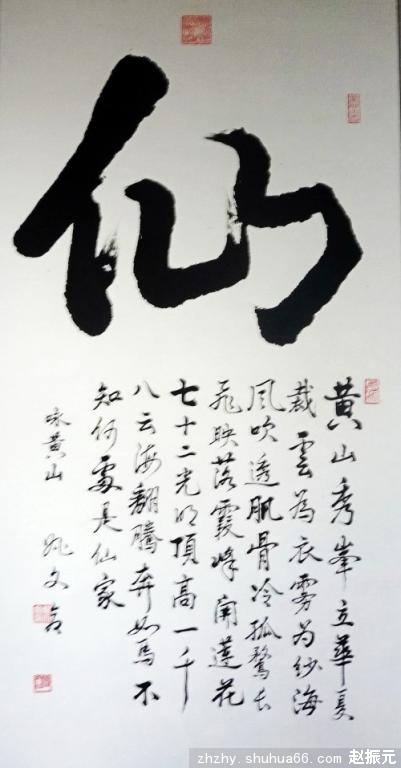 仙
黄山秀峯立華夏
裁雲為衣雾为纱海
风吹透肌骨冷孤鹜长
飛映落霞峰开蓮花
七十二光明頂高一千
八云海翻腾奔如馬不
知何處是仙家
咏黄山
姚文
zhzhy.shuhua66.com 赵振元